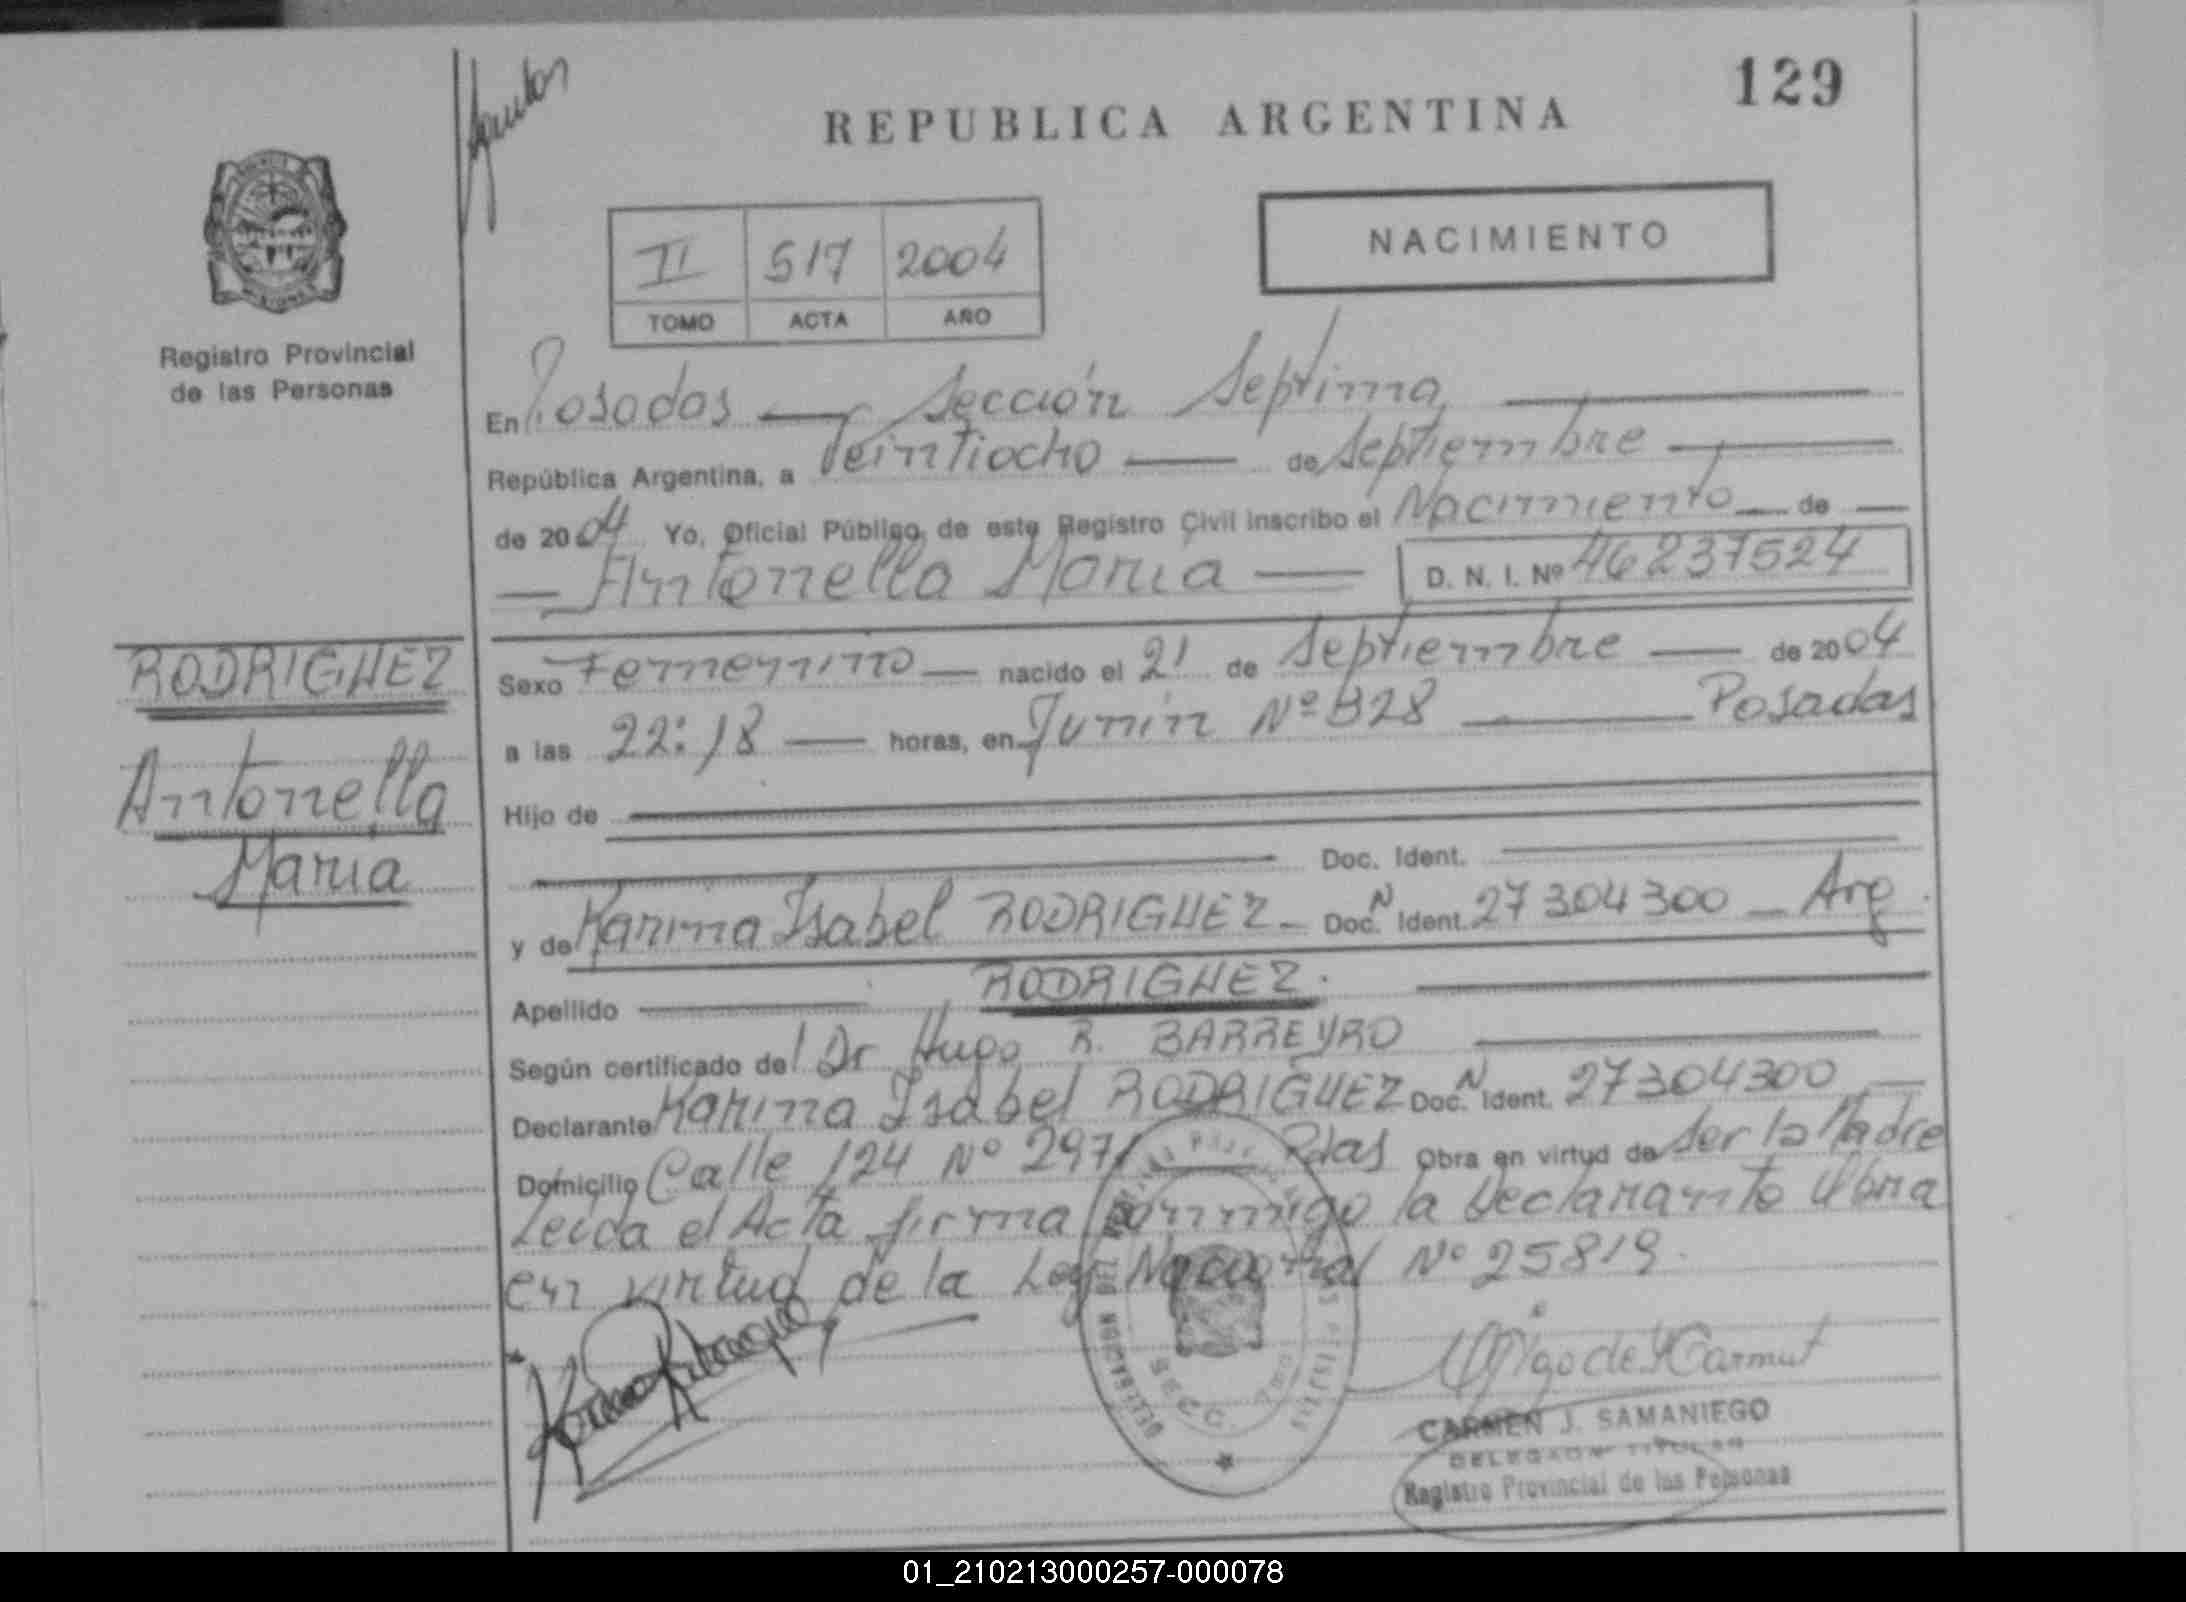 129
REPUBLICA ARGENTINA
NACIMIENTO
II 517 2004
TOMO ACTA AÑO
Registro Provincial
de las Personas
En Posadas — Sección Septima
República Argentina, a Veintiocho — de Septiembre
de 2004 Yo, Oficial Público de este Registro Civil inscribo el Nacimiento — de —
— Antonella Maria — D. N. I. Nº 46237524
RODRIGUEZ
Antonella
Maria
Sexo Femenino — nacido el 21 de Septiembre — de 2004
a las 22:18 — horas, en Junín Nº 828 — Posadas
Hijo de
Doc. Ident.
y de Karina Isabel RODRIGUEZ - Doc. N Ident. 27304300 - Arg.
Apellido RODRIGUEZ.
Según certificado del Dr Hugo R. BARREYRO
Declarante Karina Isabel RODRIGUEZ Doc. N Ident. 27304300 —
Domicilio Calle 124 Nº 297 — Pdas Obra en virtud de Ser la Madre
Leida el Acta firma conmigo la Declarante Obra
en virtud de la Ley Nacional Nº 25819.
SECC.
CARMEN J. SAMANIEGO
DELEGADA TITULAR
Registro Provincial de las Personas
01_210213000257-000078